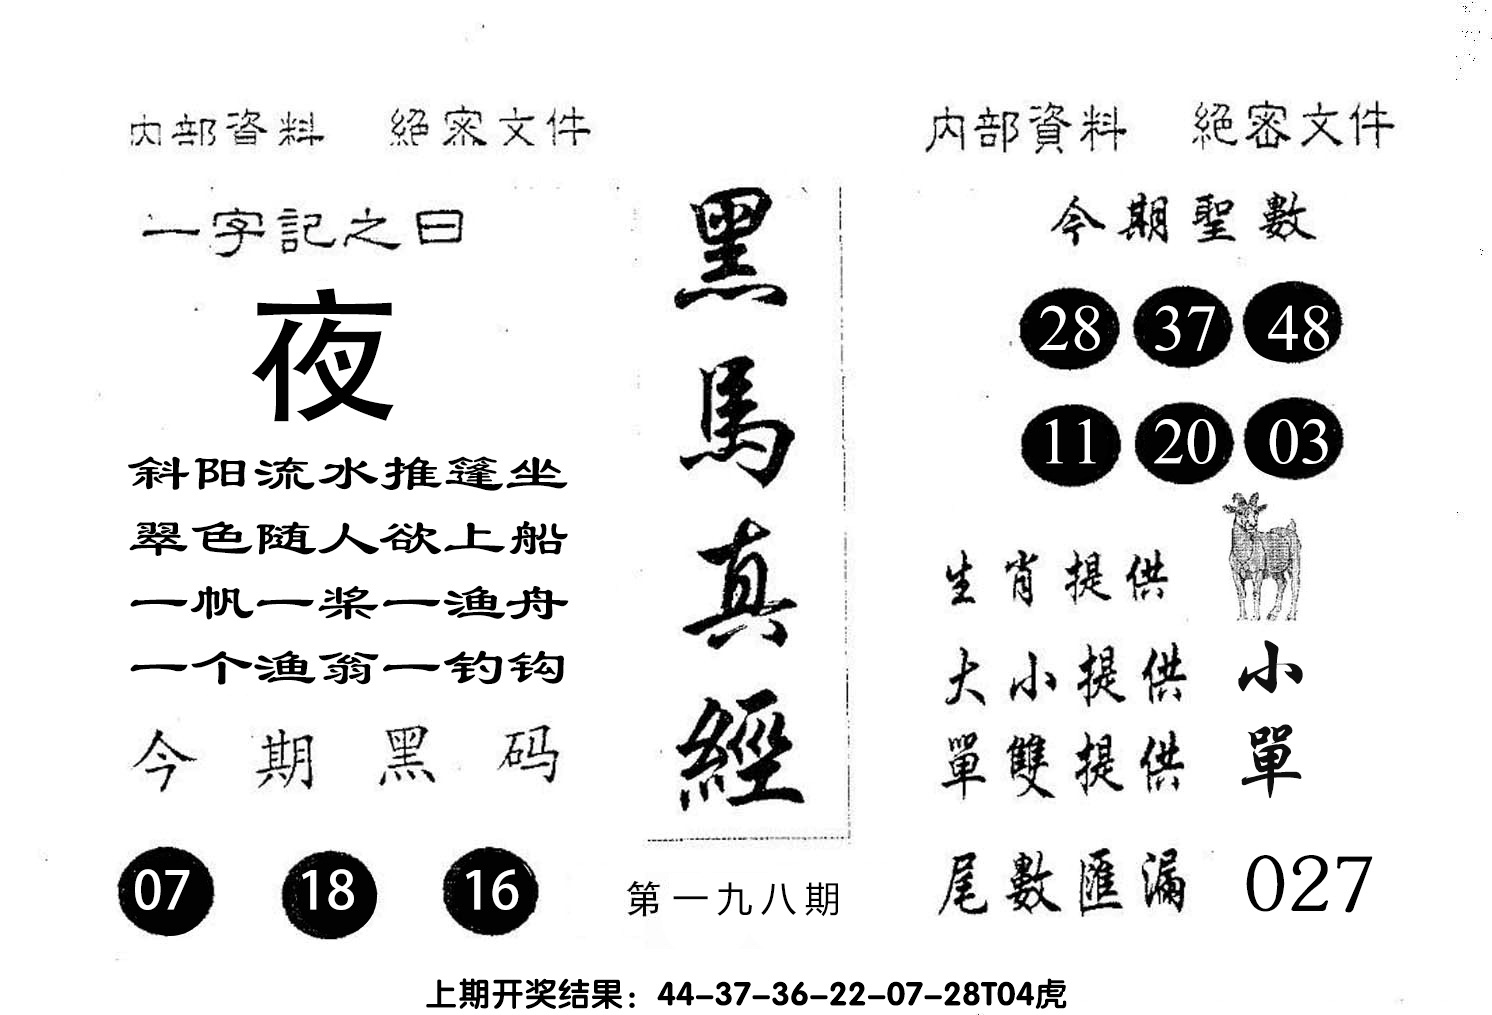 内部資料 絕密文件
一字記之曰
夜
斜阳流水推篷坐
翠色随人欲上船
一帆一桨一渔舟
一个渔翁一钓钩
今期黑码
07 18 16
黑馬真經
第一九八期
内部資料 絕密文件
今期聖數
28 37 48
11 20 03
生肖提供
大小提供 小
單雙提供 單
尾數匯漏 027
上期开奖结果：44-37-36-22-07-28T04虎